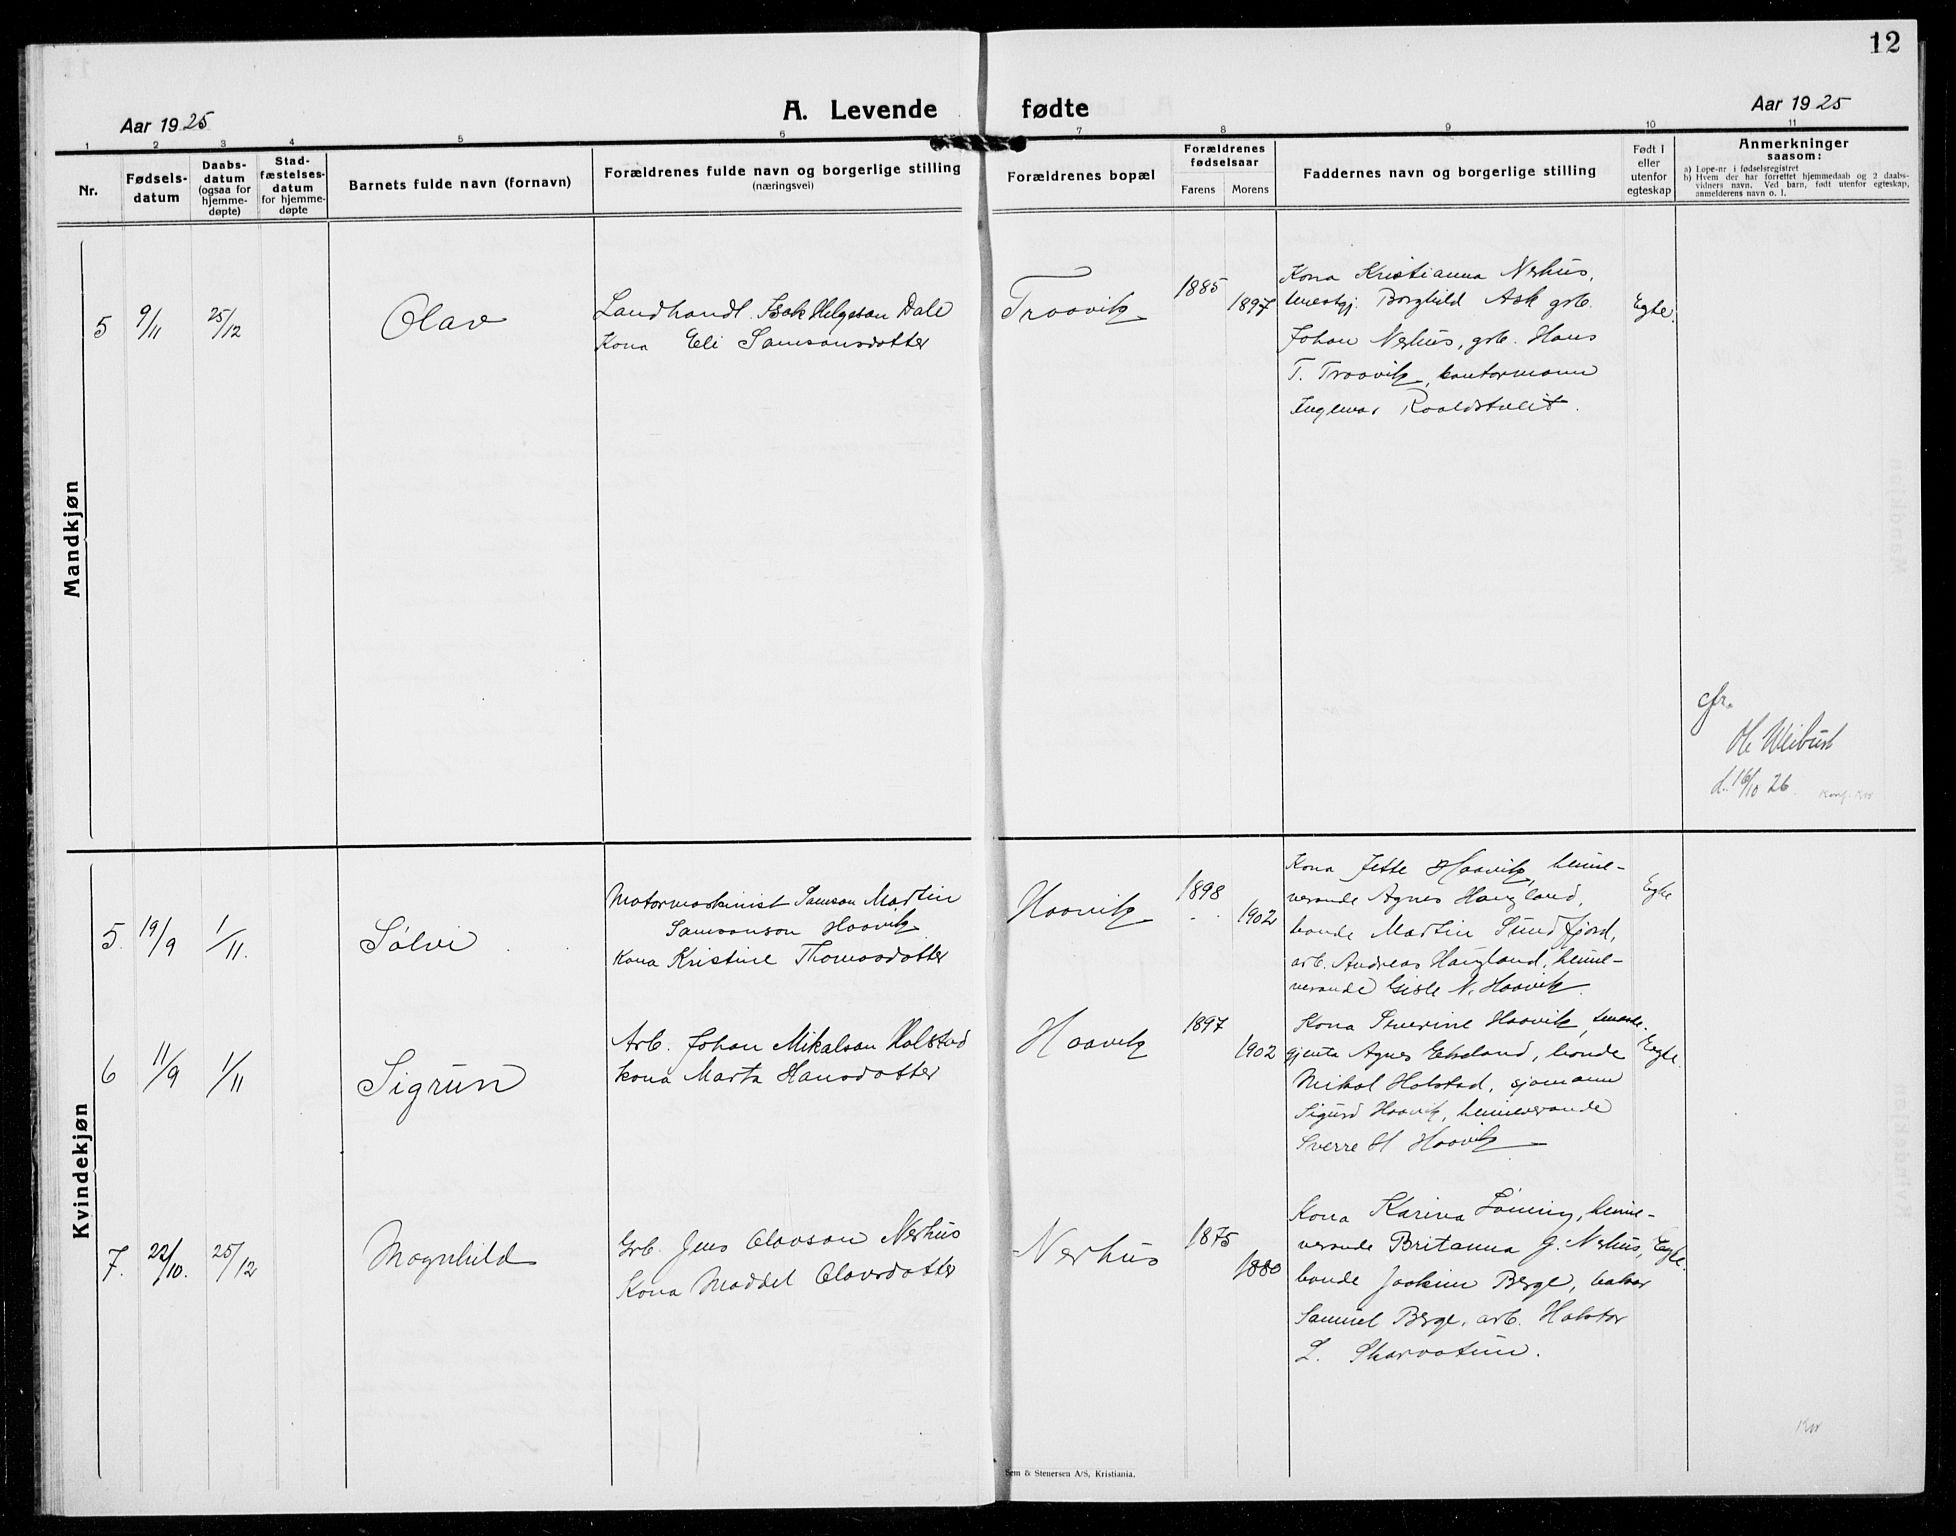 12
Aar 1925
A. Levende fødte
Aar 1925
1 2 3 4 5 6 7 8 9 10 11
Nr.
Fødsels-
datum
Daabs-
datum
(ogsaa for
hjemme-
døpte)
Stad-
fæstelses-
datum
for hjemme-
døpte
Barnets fulde navn (fornavn)
Forældrenes fulde navn og borgerlige stilling
(næringsvei)
Forældrenes bopæl
Forældrenes
fødselsaar
Farens Morens
Faddernes navn og borgerlige stilling
Født i
eller
utenfor
egteskap
Anmerkninger
saasom:
a) Løpe-nr i fødselsregistret
b) Hvem der har forrettet hjemmedaab og 2 daabs-
vidners navn. Ved barn, født utenfor egteskap,
anmelderens navn o. l.
Mandkjøn
5 9/11 25/12 Olav
Landhandl. Isak Helgeson Dale
Kona Eli Samsonsdotter
Traavik
1885
1897
Kona Kristianna Nerhus,
tenestgj. Borghild Ask grb.
Johan Nerhus, grb. Hans
T. Traavik, kontormann
Ingemar Roaldstveit.
Egte.
cfr.
d. 16/10 26.
Konf. Kvr
Kvindekjøn
5. 19/9 1/11. Sølvi
Motormaskinist Samson Martin
Samsonson Haavik
Kona Kristine Thomasdotter
Haavik
1898
1902
Kona Jette Haavik, heime-
verande Agnes Haugland,
bonde Martin Sundfjord,
arb. Andreas Haugland, heime-
verande Gisle N. Haavik.
Egte
6 11/9 1/11 Sigrun
Arb. Johan Mikalson Holstad
kona Marta Hansdotter
Haavik
1897
1902
Kona Severine Haavik, tenest-
gjenta Agnes Ekeland, bonde
Mikal Holstad, sjømann
Sigurd Haavik, heimeverande
Sverre H Haavik
Egte
7. 22/10. 25/12 Magnhild
Grb. Jens Olavson Nerhus
Kona Maddel Olavsdotter
Nerhus
1875
1880
Kona Karina Løning, heime-
verande Britanna J. Nerhus,
bonde Joakim Berge, bakar
Samuel Berge, arb. Halstor
L. Skarvatun.
Egte.
Kvr
Sem & Stenersen A/S, Kristiania.